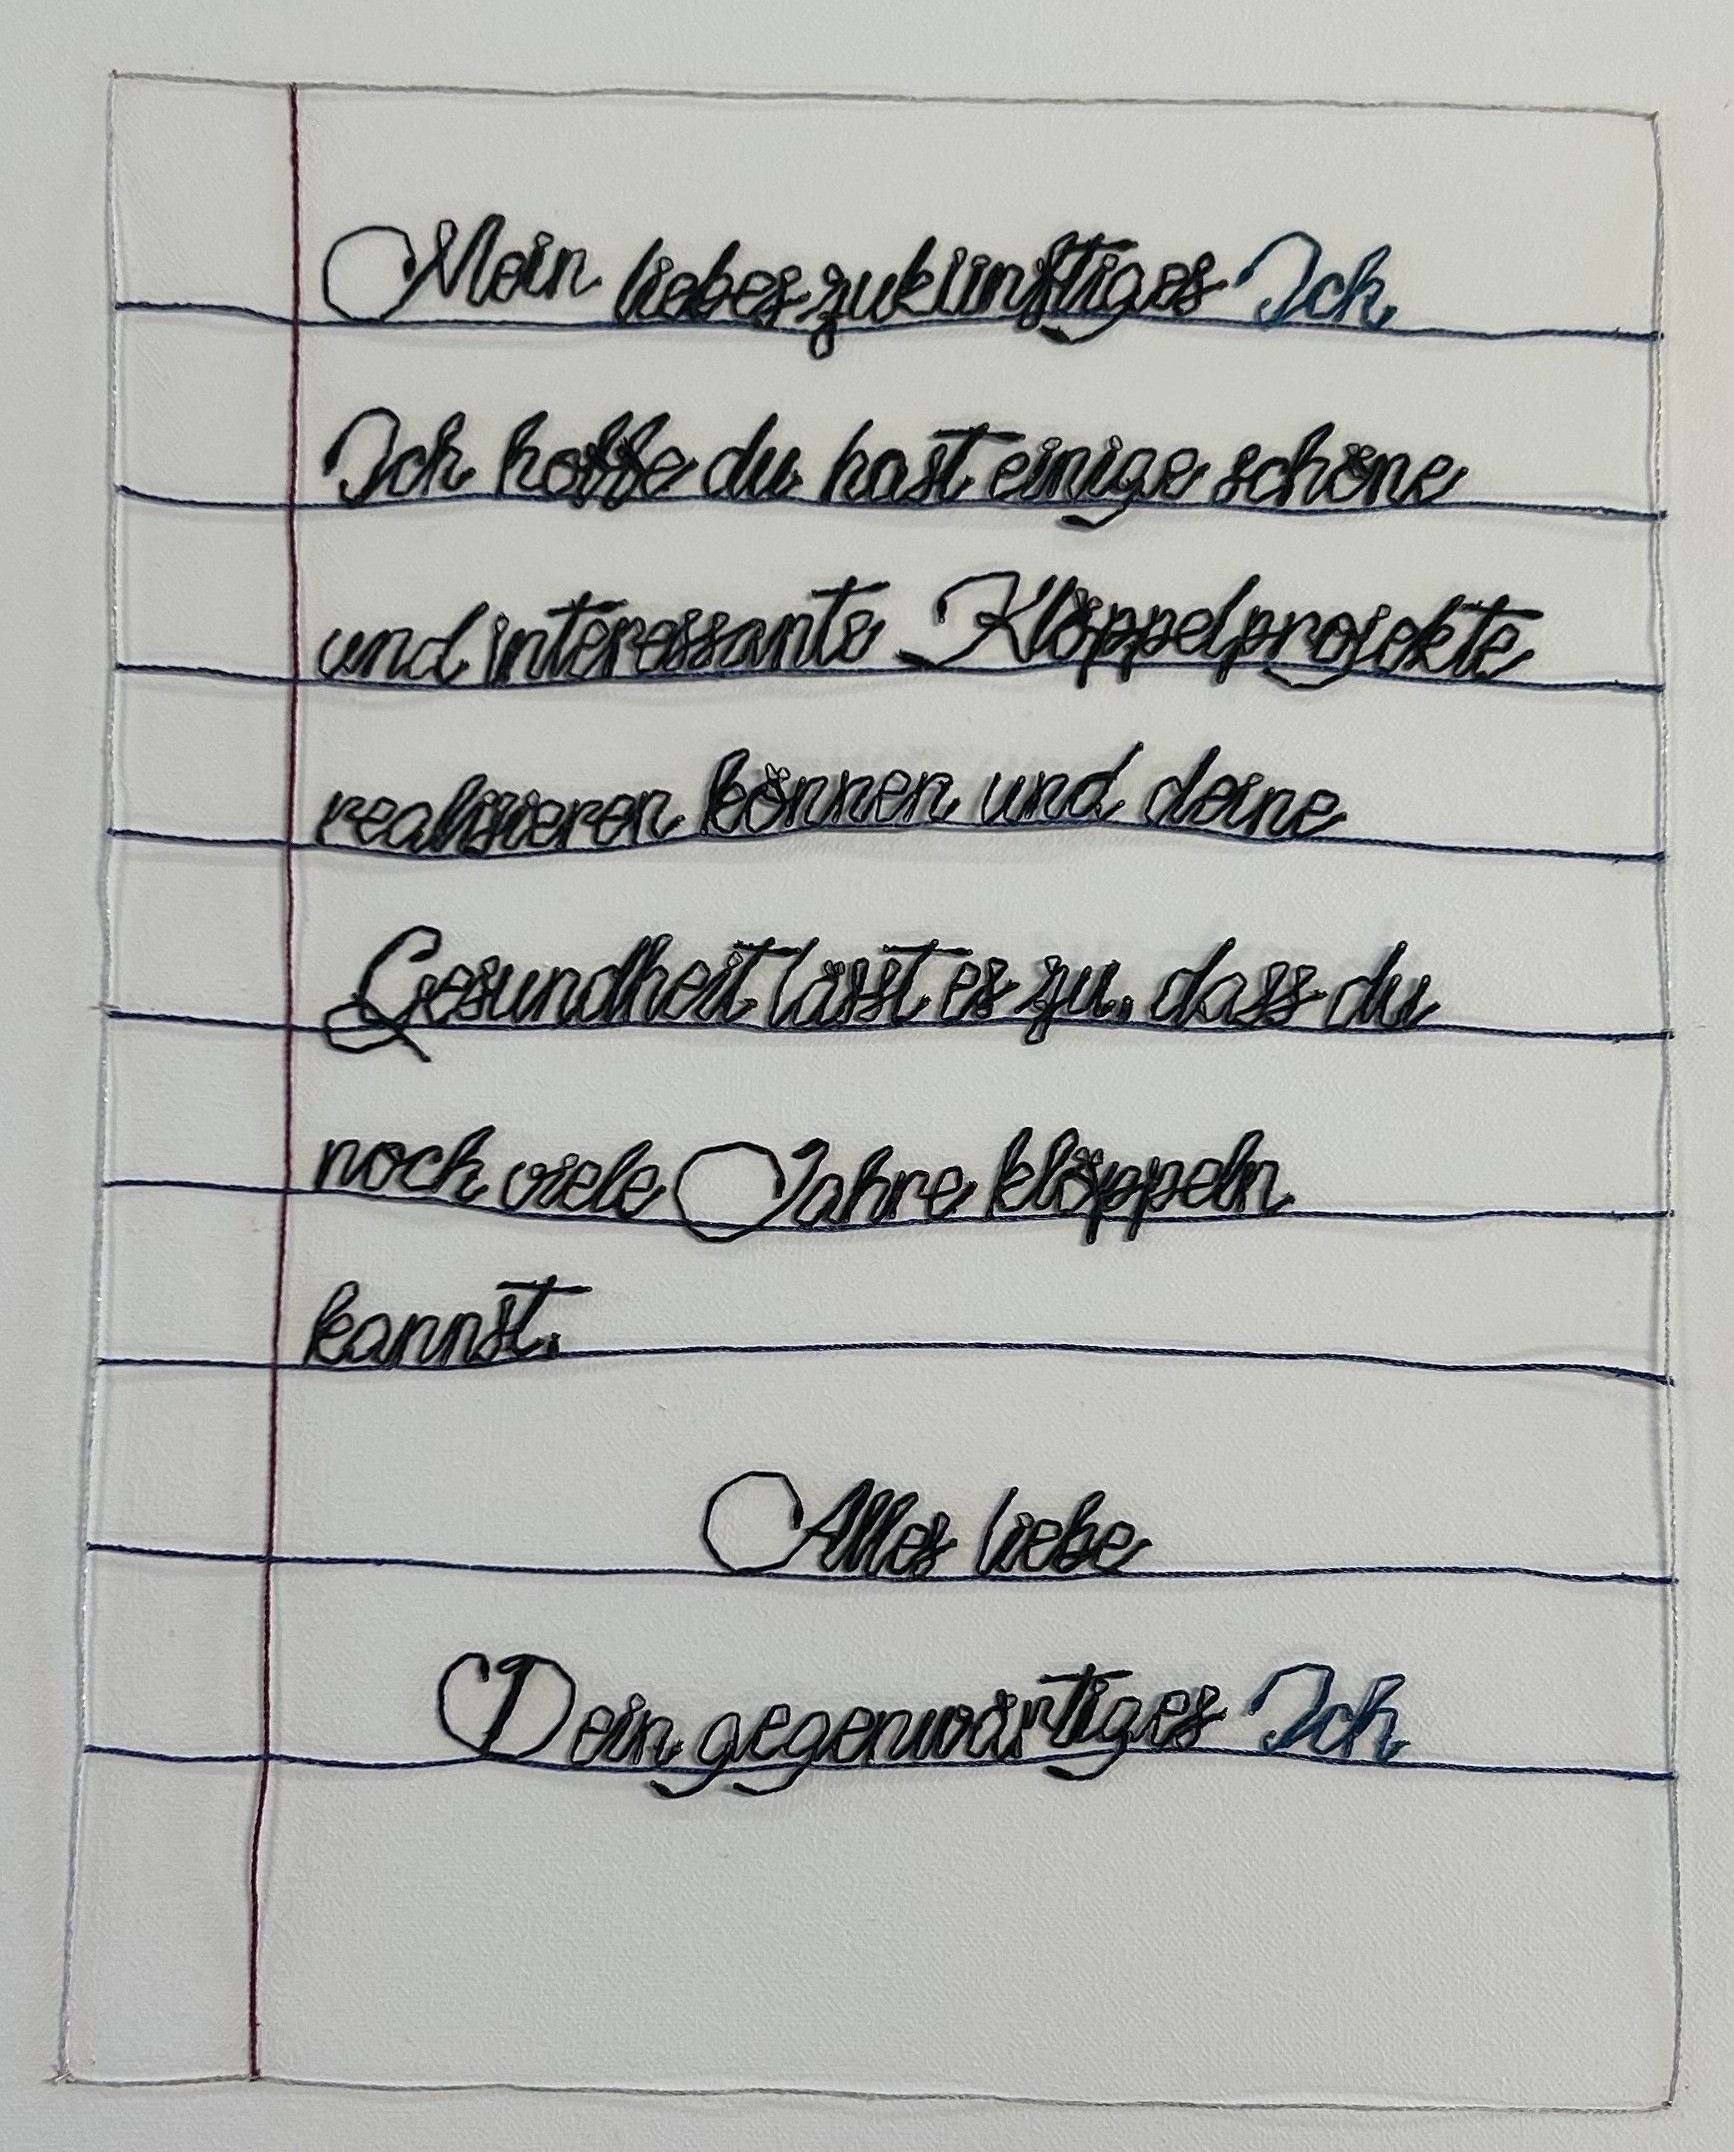 Mein liebes zukünftiges Ich,
Ich hoffe du hast einige schöne
und interessante Klöppelprojekte
realisieren können und deine
Gesundheit lässt es zu, dass du
noch viele Jahre klöppeln
kannst.
Alles liebe
Dein gegenwärtiges Ich